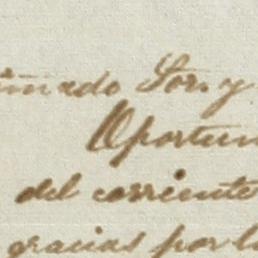 Sor. y
Oportun
del corriente
gracias por l